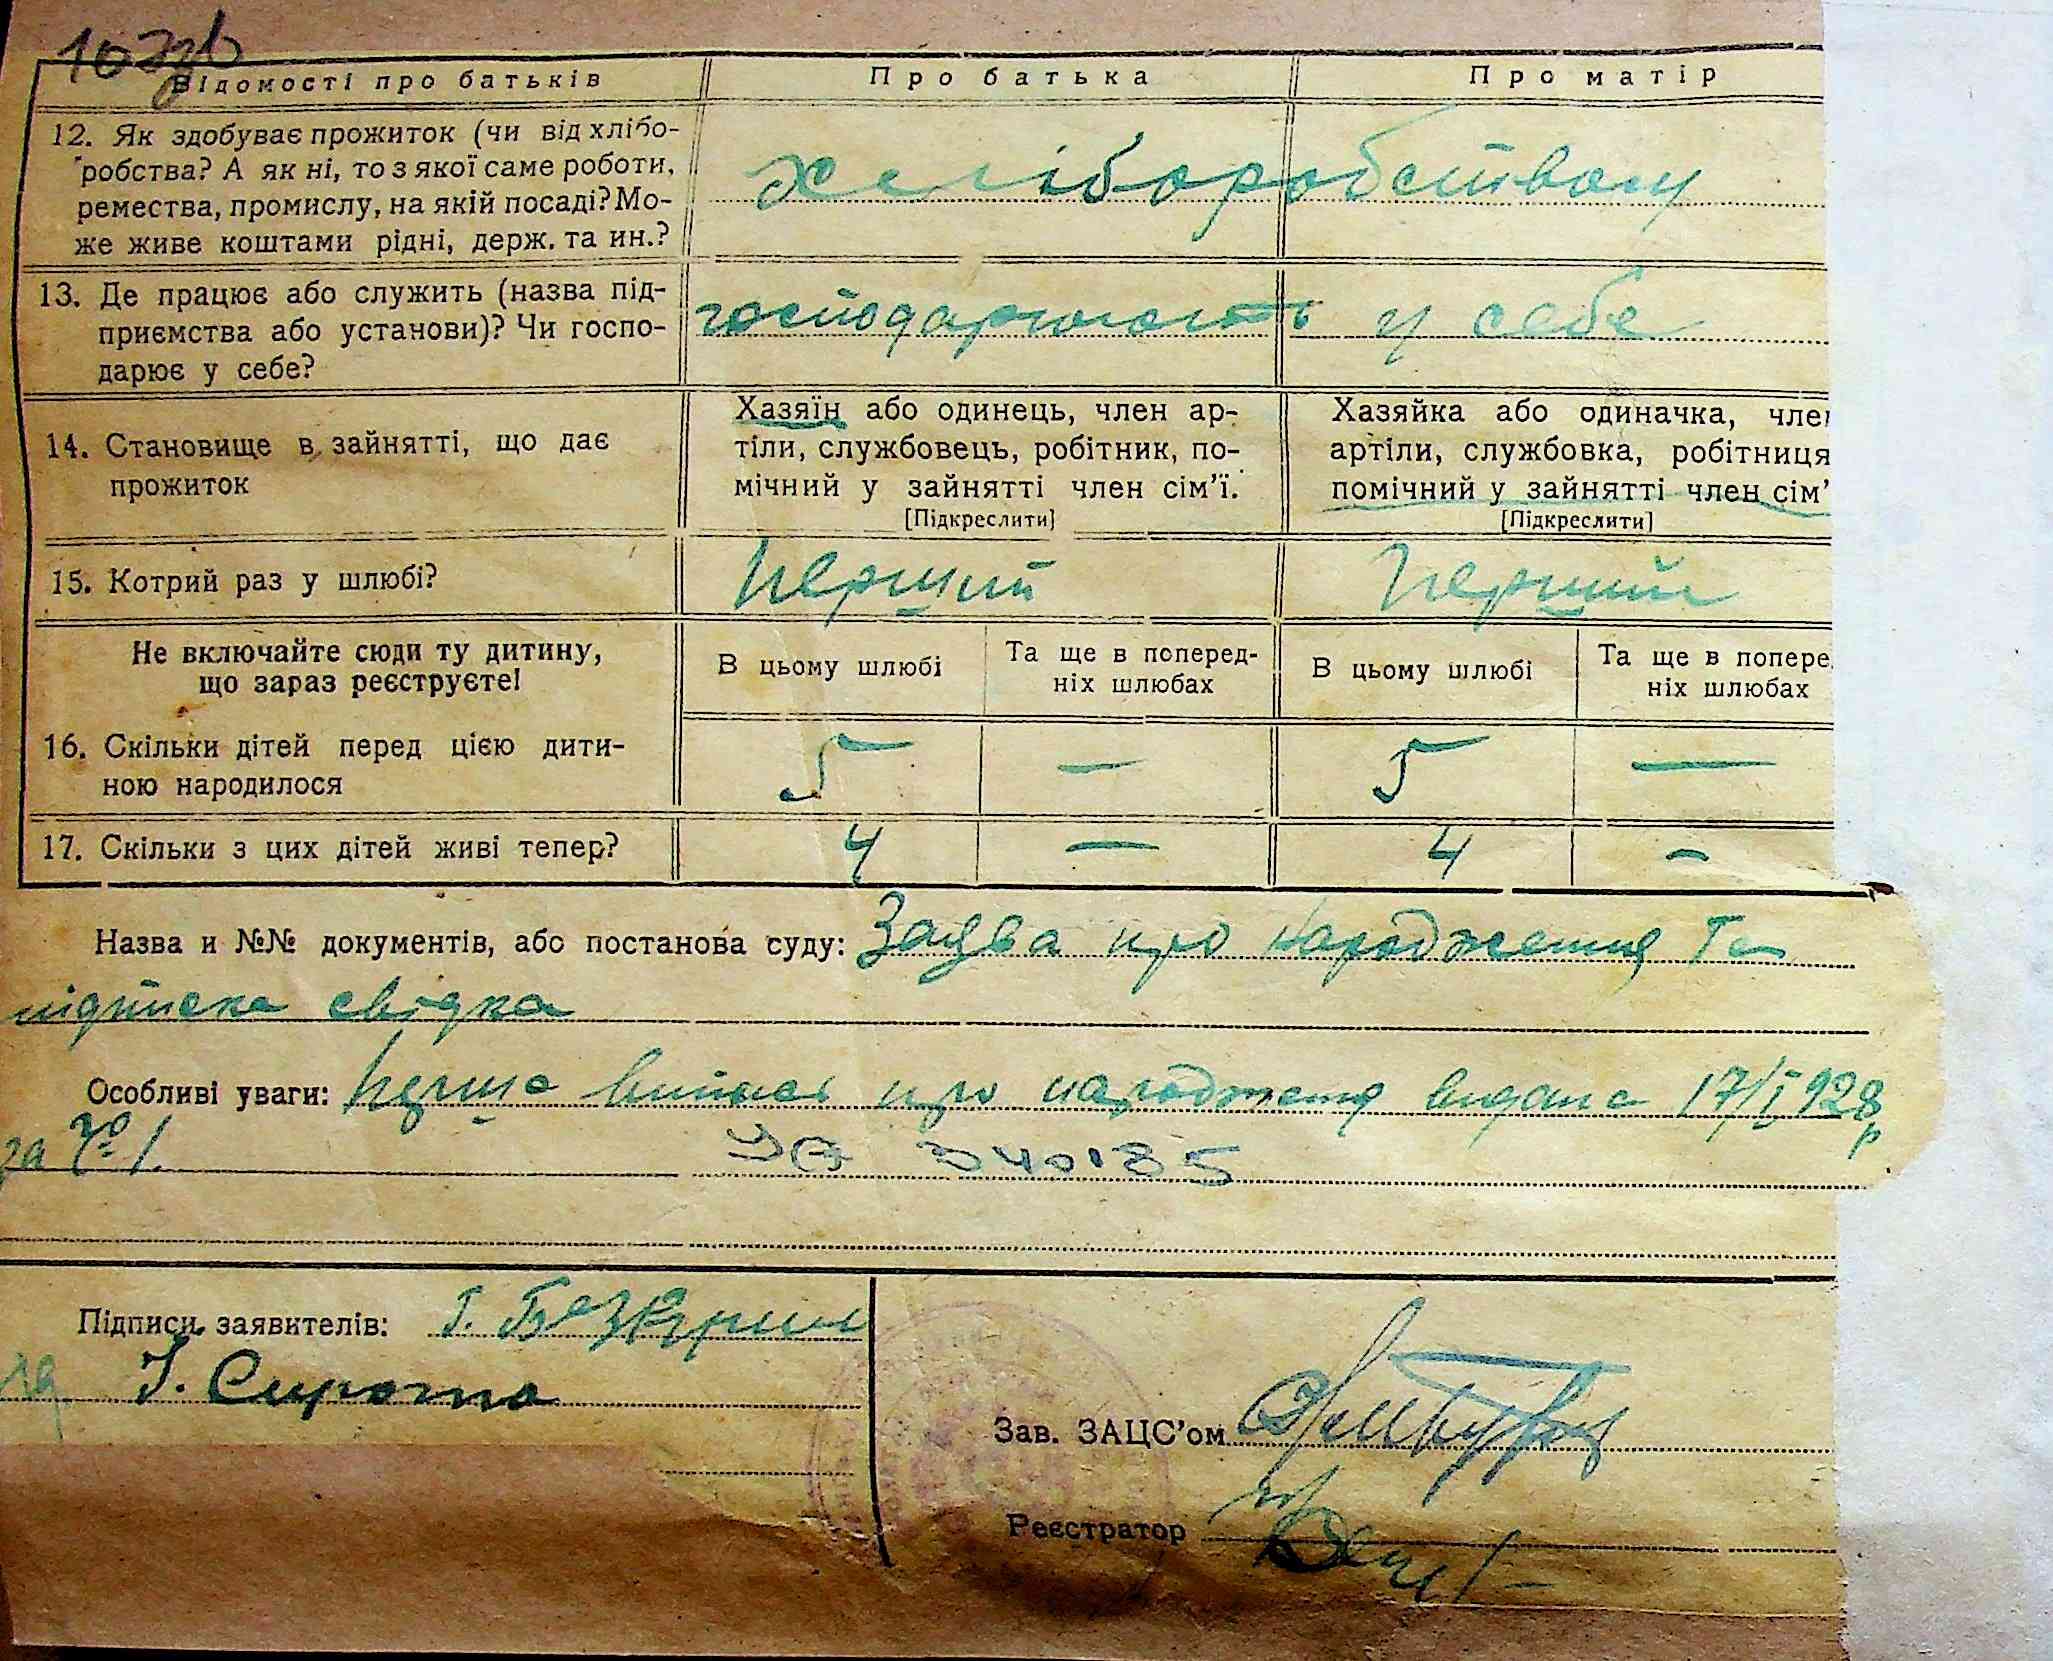 Відомості про батьків Про батька Про матір
12. Як здобуває прожиток (чи від хлібо-
робства? А як ні, то з якої саме роботи,
ремества, промислу, на якій посаді? Мо-
же живе коштами рідні, держ. та ин.?
хліборобством
13. Де працює або служить (назва під-
приємства або установи)? Чи госпо-
дарює у себе?
господарюють у себе
14. Становище в зайнятті, що дає
прожиток
Хазяїн або одинець, член ар-
тіли, службовець, робітник, по-
мічний у зайнятті член сім'ї.
[Підкреслити]
Хазяйка або одиначка, член
артіли, службовка, робітниця
помічний у зайнятті член сім'
[Підкреслити]
15. Котрий раз у шлюбі? перший перший
Не включайте сюди ту дитину,
що зараз реєструєте!
В цьому шлюбі
Та ще в поперед-
ніх шлюбах
В цьому шлюбі
Та ще в попере
ніх шлюбах
16. Скільки дітей перед цією дити-
ною народилося
5 — 5 —
17. Скільки з цих дітей живі тепер? 4 — 4 —
Назва и №№ документів, або постанова суду: Заява про народження та
підписка свідка
Особливі уваги: Перша випись про народження видана 17/I 928 р
за № 1. 340185
Підписи заявителів: Г.
І. Сирота
Зав. ЗАЦС'ом
Реєстратор